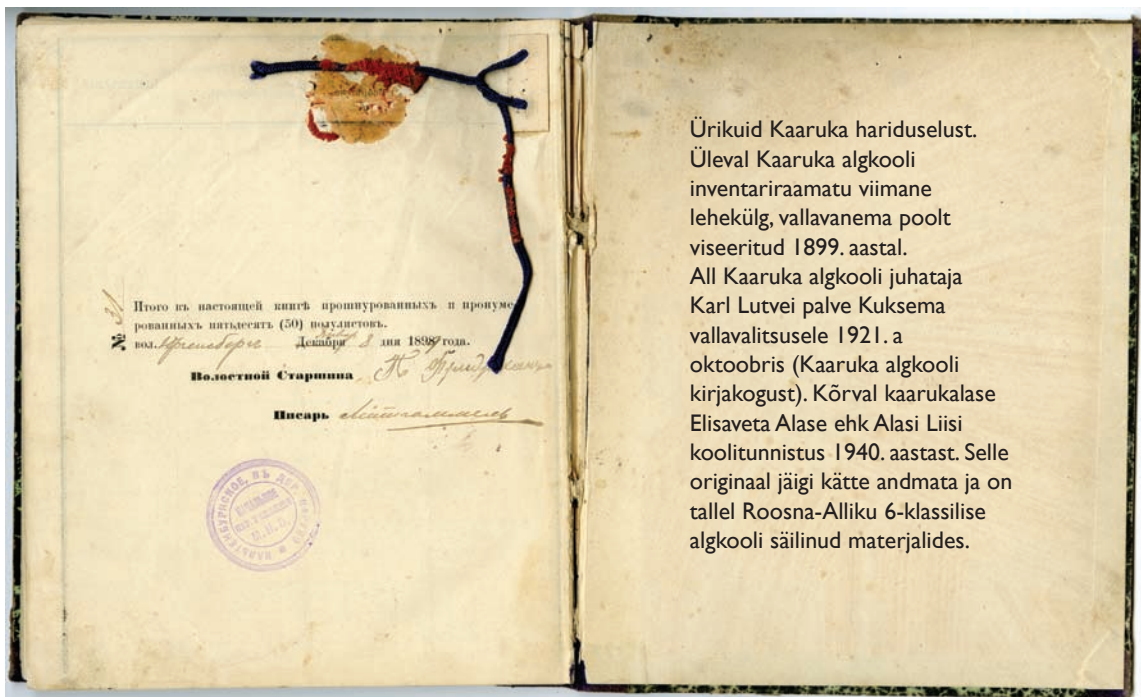 Итого въ настоящей книгѣ прошнурованныхъ и пронуме-
рованныхъ пятьдесятъ (50) полулистовъ.
№ 31
вол. Декабря 8 дня 1899 года.
Волостной Старшина
Писарь
Ürikuid Kaaruka hariduselust.
Üleval Kaaruka algkooli
inventariraamatu viimane
lehekülg, vallavanema poolt
viseeritud 1899. aastal.
All Kaaruka algkooli juhataja
Karl Lutvei palve Kuksema
vallavalitsusele 1921. a
oktoobris (Kaaruka algkooli
kirjakogust). Kõrval kaarukalase
Elisaveta Alase ehk Alasi Liisi
koolitunnistus 1940. aastast. Selle
originaal jäigi kätte andmata ja on
tallel Roosna-Alliku 6-klassilise
algkooli säilinud materjalides.